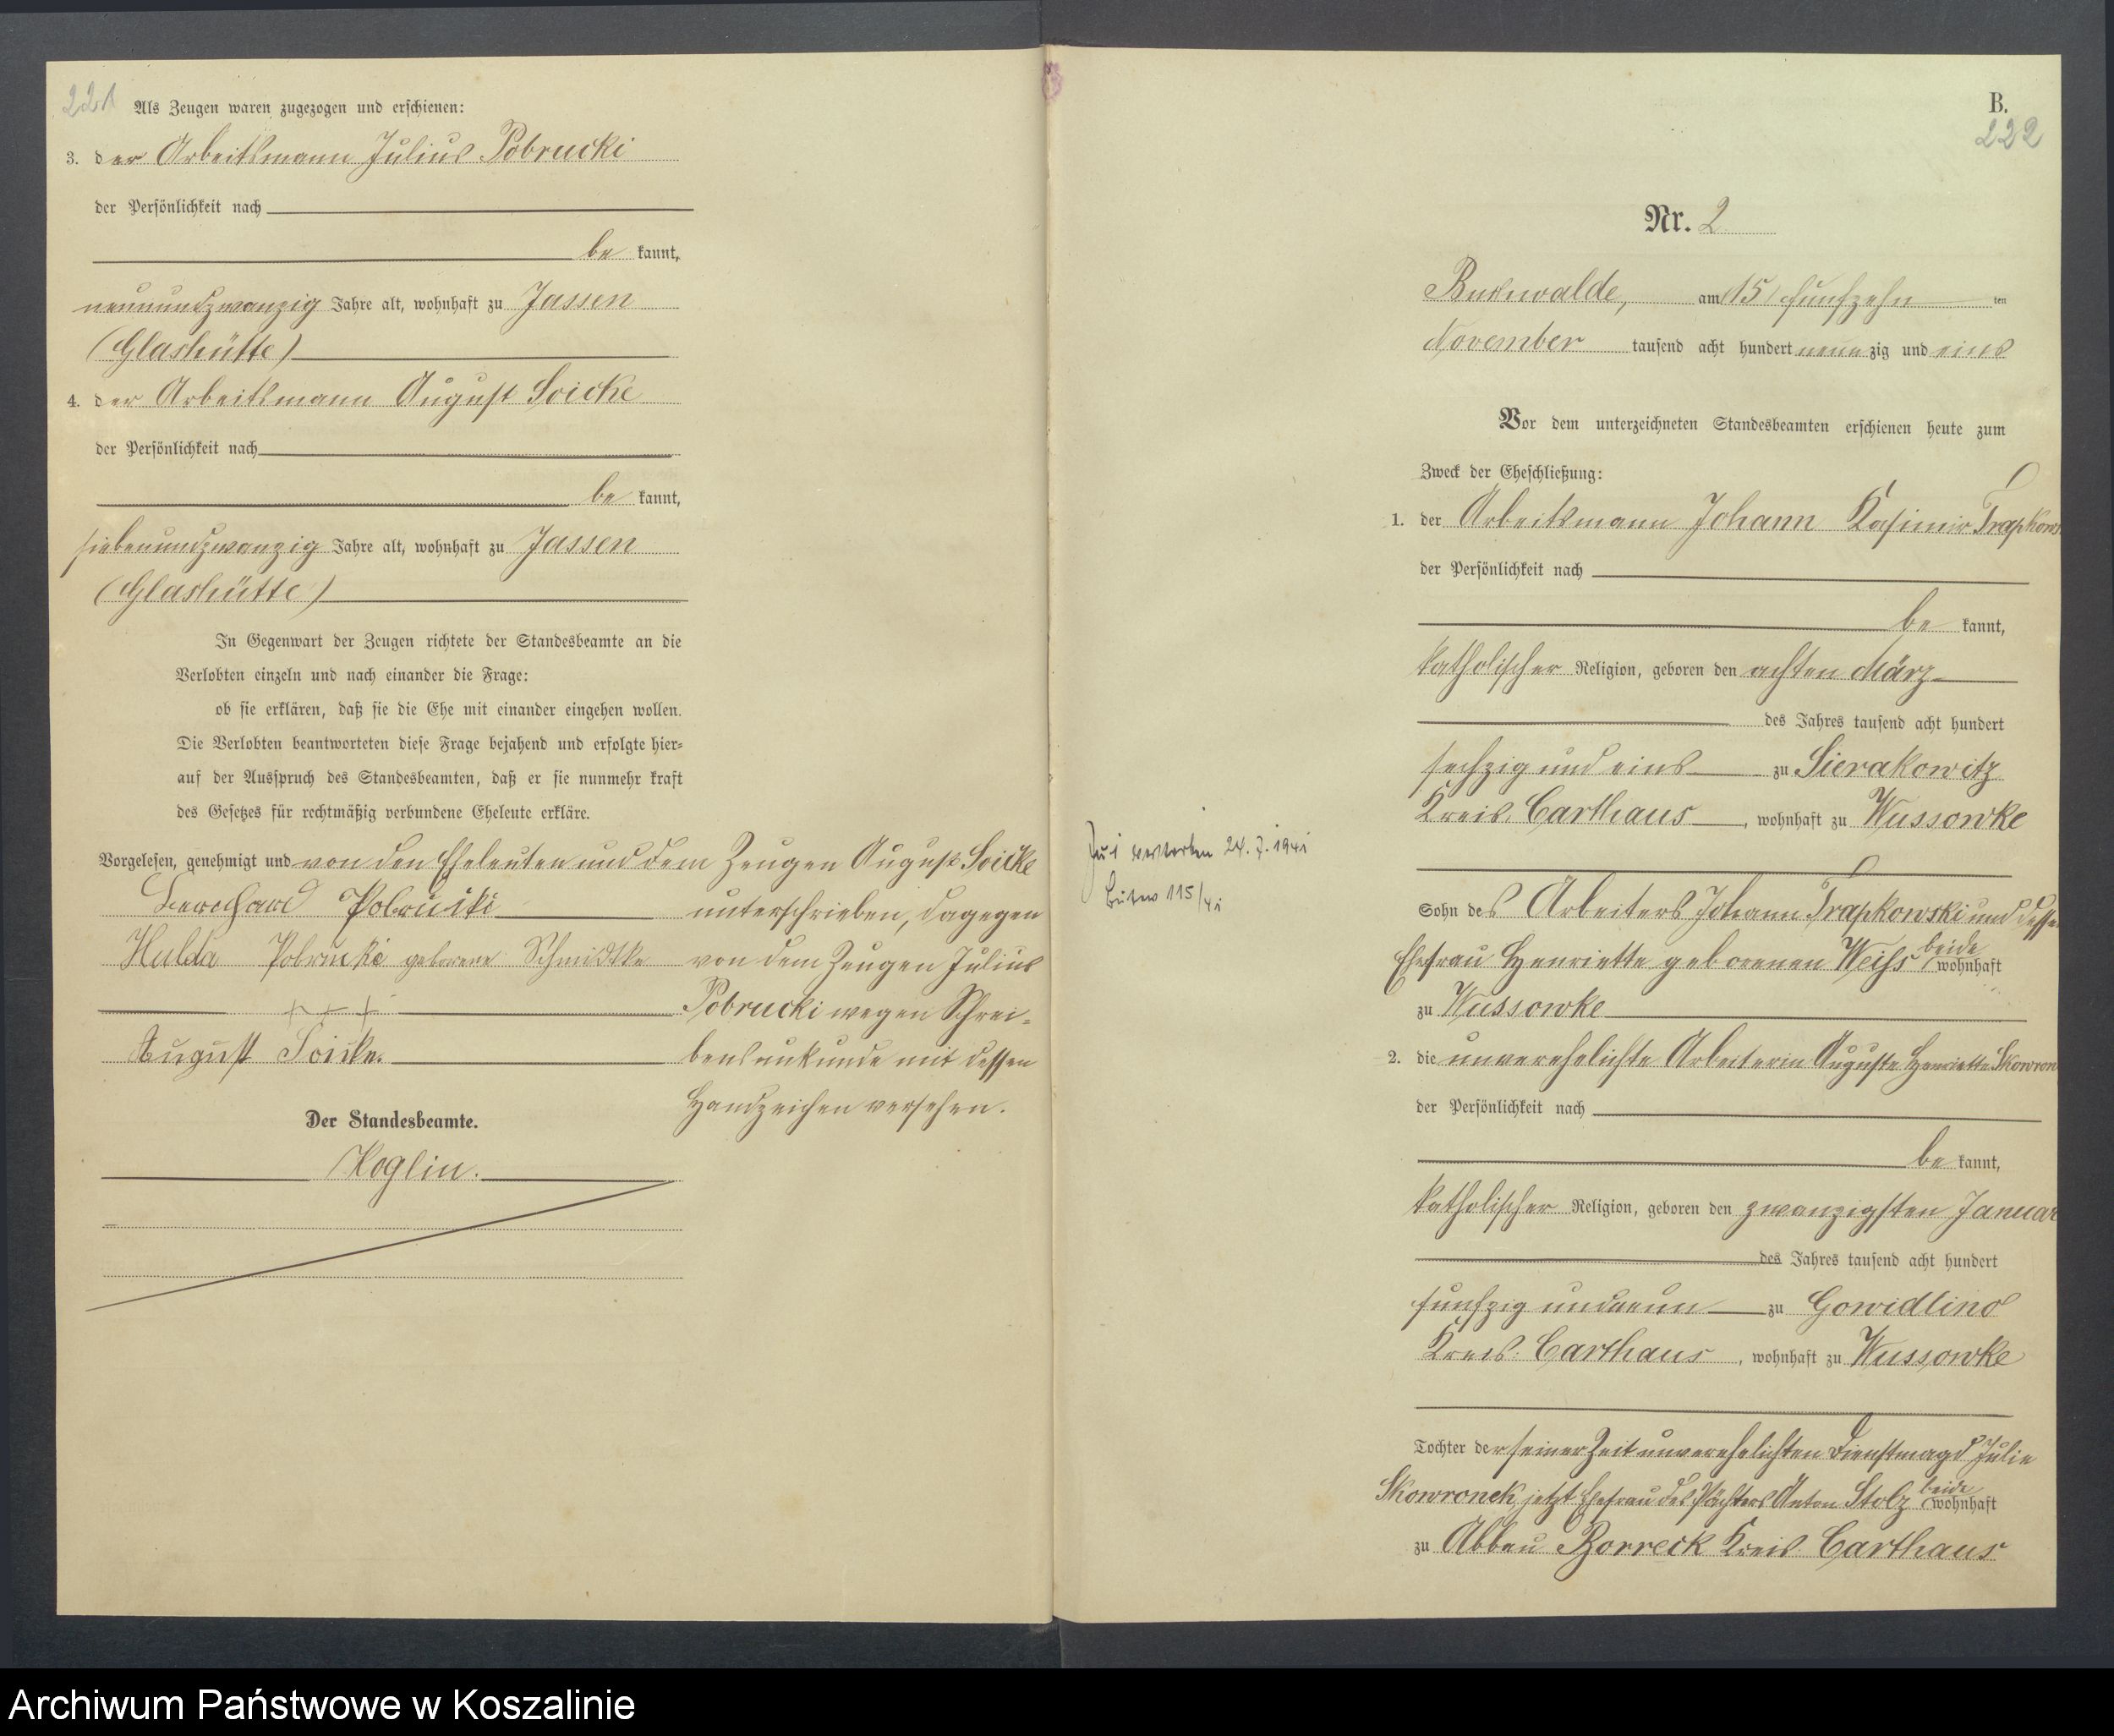 221
Als Zeugen waren zugezogen und erschienen:
3. der Arbeitsmann Julius Pobrucki
der Persönlichkeit nach
be kannt,
neunundzwanzig Jahre alt, wohnhaft zu Jassen
(Glashütte)
4. der Arbeitsmann August Soicke
der Persönlichkeit nach
be kannt,
siebenundzwanzig Jahre alt, wohnhaft zu Jassen
(Glashütte)
In Gegenwart der Zeugen richtete der Standesbeamte an die
Verlobten einzeln und nach einander die Frage:
ob sie erklären, daß sie die Ehe mit einander eingehen wollen.
Die Verlobten beantworteten diese Frage bejahend und erfolgte hier-
auf der Ausspruch des Standesbeamten, daß er sie nunmehr kraft
des Gesetzes für rechtmäßig verbundene Eheleute erkläre.
Vorgelesen, genehmigt und von den Eheleuten und dem Zeugen August Soicke
Bernhard Pobrucki unterschrieben, dagegen
Hulda Pobrucki geborene Schmidtke von dem Zeugen Julius
+ + + Pobrucki wegen Schrei-
August Soicke. bensunkunde mit dessen
Handzeichen versehen.
Der Standesbeamte.
Koglin.
B.
222
Nr. 2
Buchwalde, am (15) fünfzehn ten
November tausend acht hundert neun zig und eins
Vor dem unterzeichneten Standesbeamten erschienen heute zum
Zweck der Eheschließung:
1. der Arbeitsmann Johann Kasimir Trapkows
der Persönlichkeit nach
be kannt,
katholischer Religion, geboren den achten März
des Jahres tausend acht hundert
sechzig und eins zu Sierakowitz
Kreis Carthaus, wohnhaft zu Wussowke
Zu 1 verstorben 24.7.1941
Bütow 115/41
Sohn des Arbeiters Johann Trapkowski und dessen
Ehefrau Henriette geborenen Weiss beide wohnhaft
zu Wussowke
2. die unverehelichte Arbeiterin Auguste Henriette Skowron
der Persönlichkeit nach
be kannt,
katholischer Religion, geboren den zwanzigsten Januar
des Jahres tausend acht hundert
fünfzig und neun zu Gowidlino
Kreis Carthaus, wohnhaft zu Wussowke
Tochter der seiner Zeit unverehelichten Dienstmagd Julie
Skowronek, jetzt Ehefrau des Pächters Anton Stolz beide wohnhaft
zu Abbau Borreck Kreis Carthaus
Archiwum Państwowe w Koszalinie